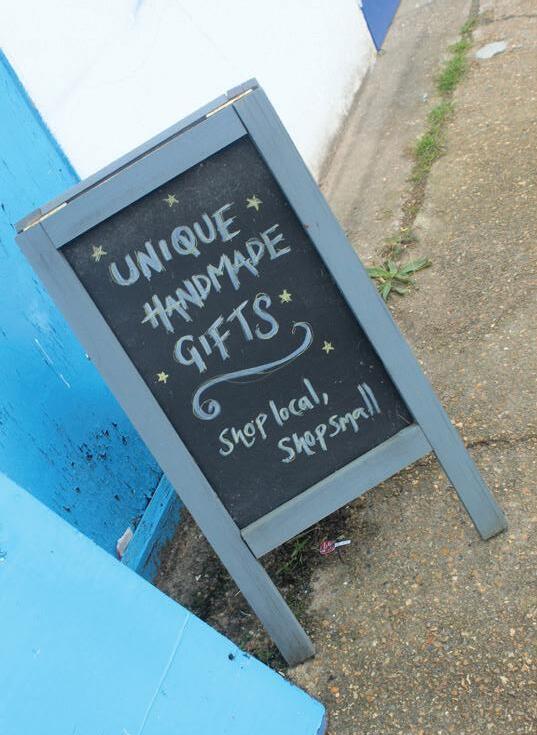 UNIQUE
HANDMADE
GIFTS
Shop local,
Shop small